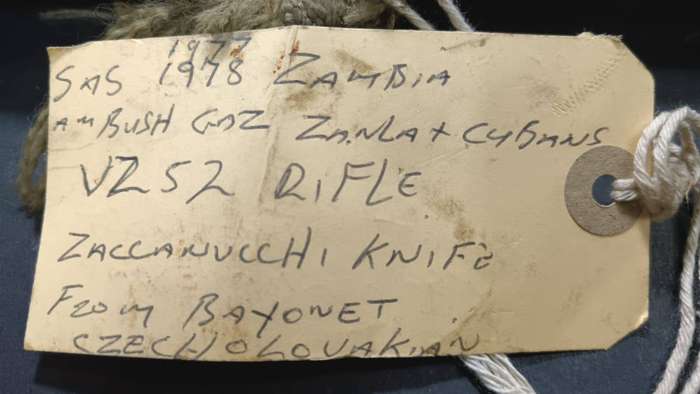 1977
SAS 1978 ZAMBIA
AMBUSH GAZ ZANLA + CUBANS
VZ52 RIFLE
ZACCANUCCHI KNIFE
FROM BAYONET
CZECHOLOVAKIAN